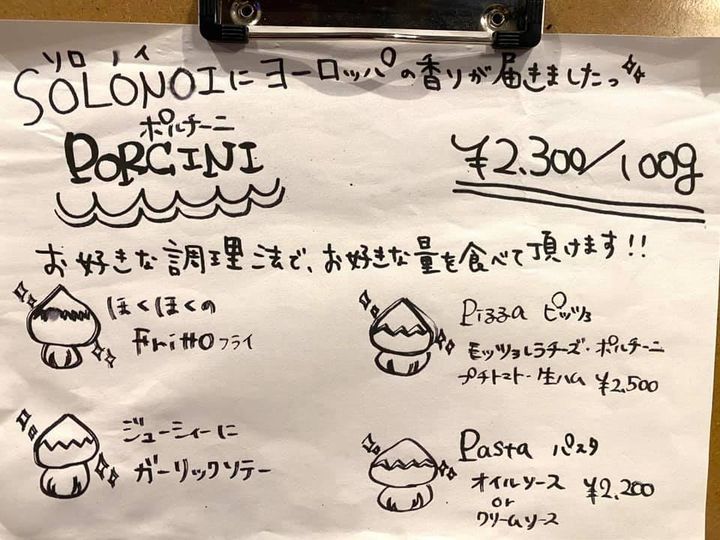 ソロ ノイ
SOLONOIにヨーロッパの香りが届きましたっ
ポルチーニ
PORCINI
¥2.300/100g
お好きな調理法で、お好きな量を食べて頂けます!!
ほくほくの
Fritto フライ
Pizza ピッツァ
モッツァレラチーズ・ポルチーニ
プチトマト・生ハム ¥2,500
ジューシィーに
ガーリックソテー
Pasta パスタ
オイルソース ¥2,200
or
クリームソース